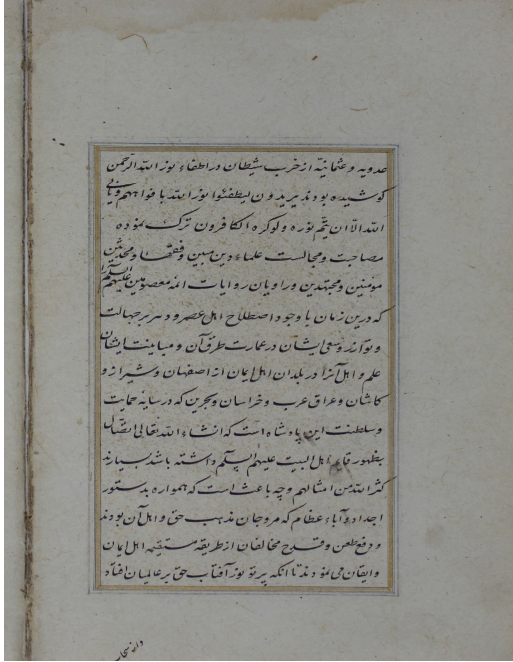 عدویه و عثمانیة از حزب شیطان در اطفاء نور الله الرحمن
کوشیده بودند یریدون لیطفئوا نور الله بافواههم ویابی
الله الا ان یتم نوره ولو کره الکافرون ترک نموده
مصاحبت و مجالست علماء دین مبین و فقها و محدثین
مومنین و مجتهدین و راویان روایات ائمه معصومین علیهم السلام
که درین زمان با وجود اصطلاح اهل عصر و دهر بر جهالت
و سعی ایشان در عمارت طرق آن و مباینت ایشان
علم و اهل آنرا در بلدان اهل ایمان از اصفهان و شیراز و
کاشان و عراق عرب و خراسان و بحرین که در سایه حمایت
و سلطنت این پادشاه است که انشاء الله تعالی اتصال
بظهور قایم اهل البیت علیهم السلم داشته باشد بسیارند
کثر الله من امثالهم وچه باعث است که همواره بدستور
اجداد و آباء عظام که مروجان مذهب حق و اهل آن بودند
و دفع طعن و قدح مخالفان از طریقه مستقیمه اهل ایمان
و ایقان می نمودند تا انکه پرتو نور آفتاب حق بر عالمیان افتاد